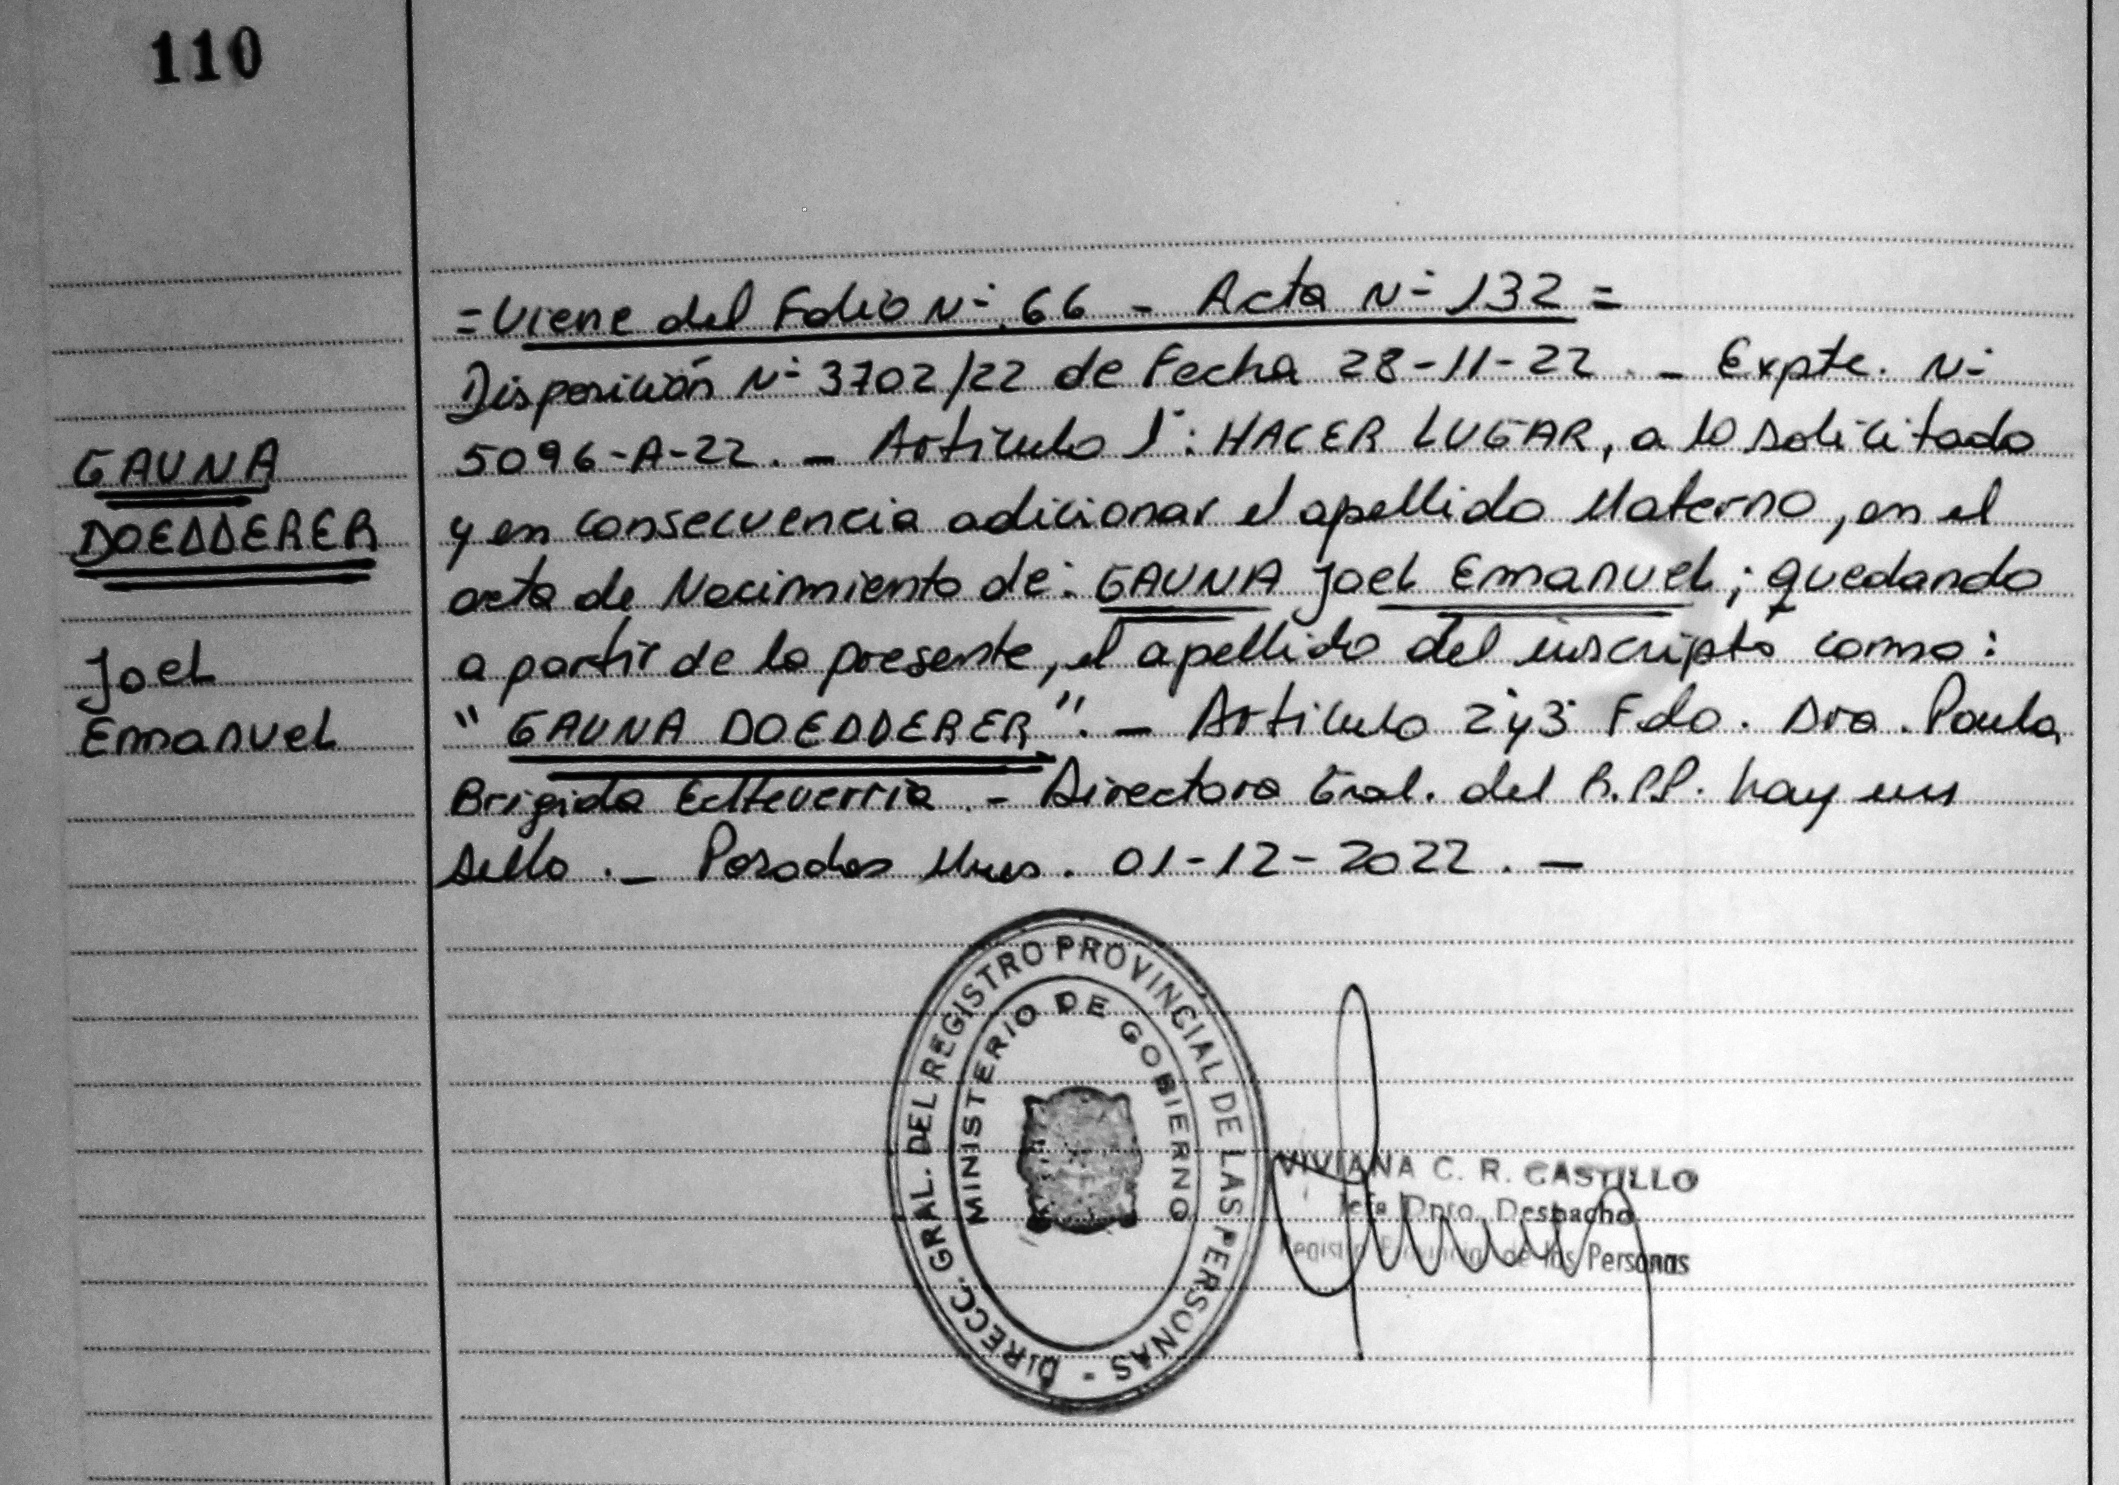 110
GAUNA
DOEDDERER
Joel
Emanuel
= Viene del Folio Nº 66 - Acta Nº 132 =
Disposición Nº 3702/22 de Fecha 28-11-22. - Expte. Nº
5096-A-22. - Artículo 1º: HACER LUGAR, a lo solicitado
y en consecuencia adicionar el apellido Materno, en el
acta de Nacimiento de: GAUNA Joel Emanuel; quedando
a partir de la presente, el apellido del inscripto como:
"GAUNA DOEDDERER". - Artículo 2º y 3º Fdo. Dra. Paula
Brigida Echeverria. - Directora Gral. del R.P.P. hay un
sello. - Posadas Mnes. 01-12-2022. -
DIRECC. GRAL. DEL REGISTRO PROVINCIAL DE LAS PERSONAS -
MINISTERIO DE GOBIERNO
VIVIANA C. R. CASTILLO
Jefa Dpto. Despacho
Registro Provincial de las Personas